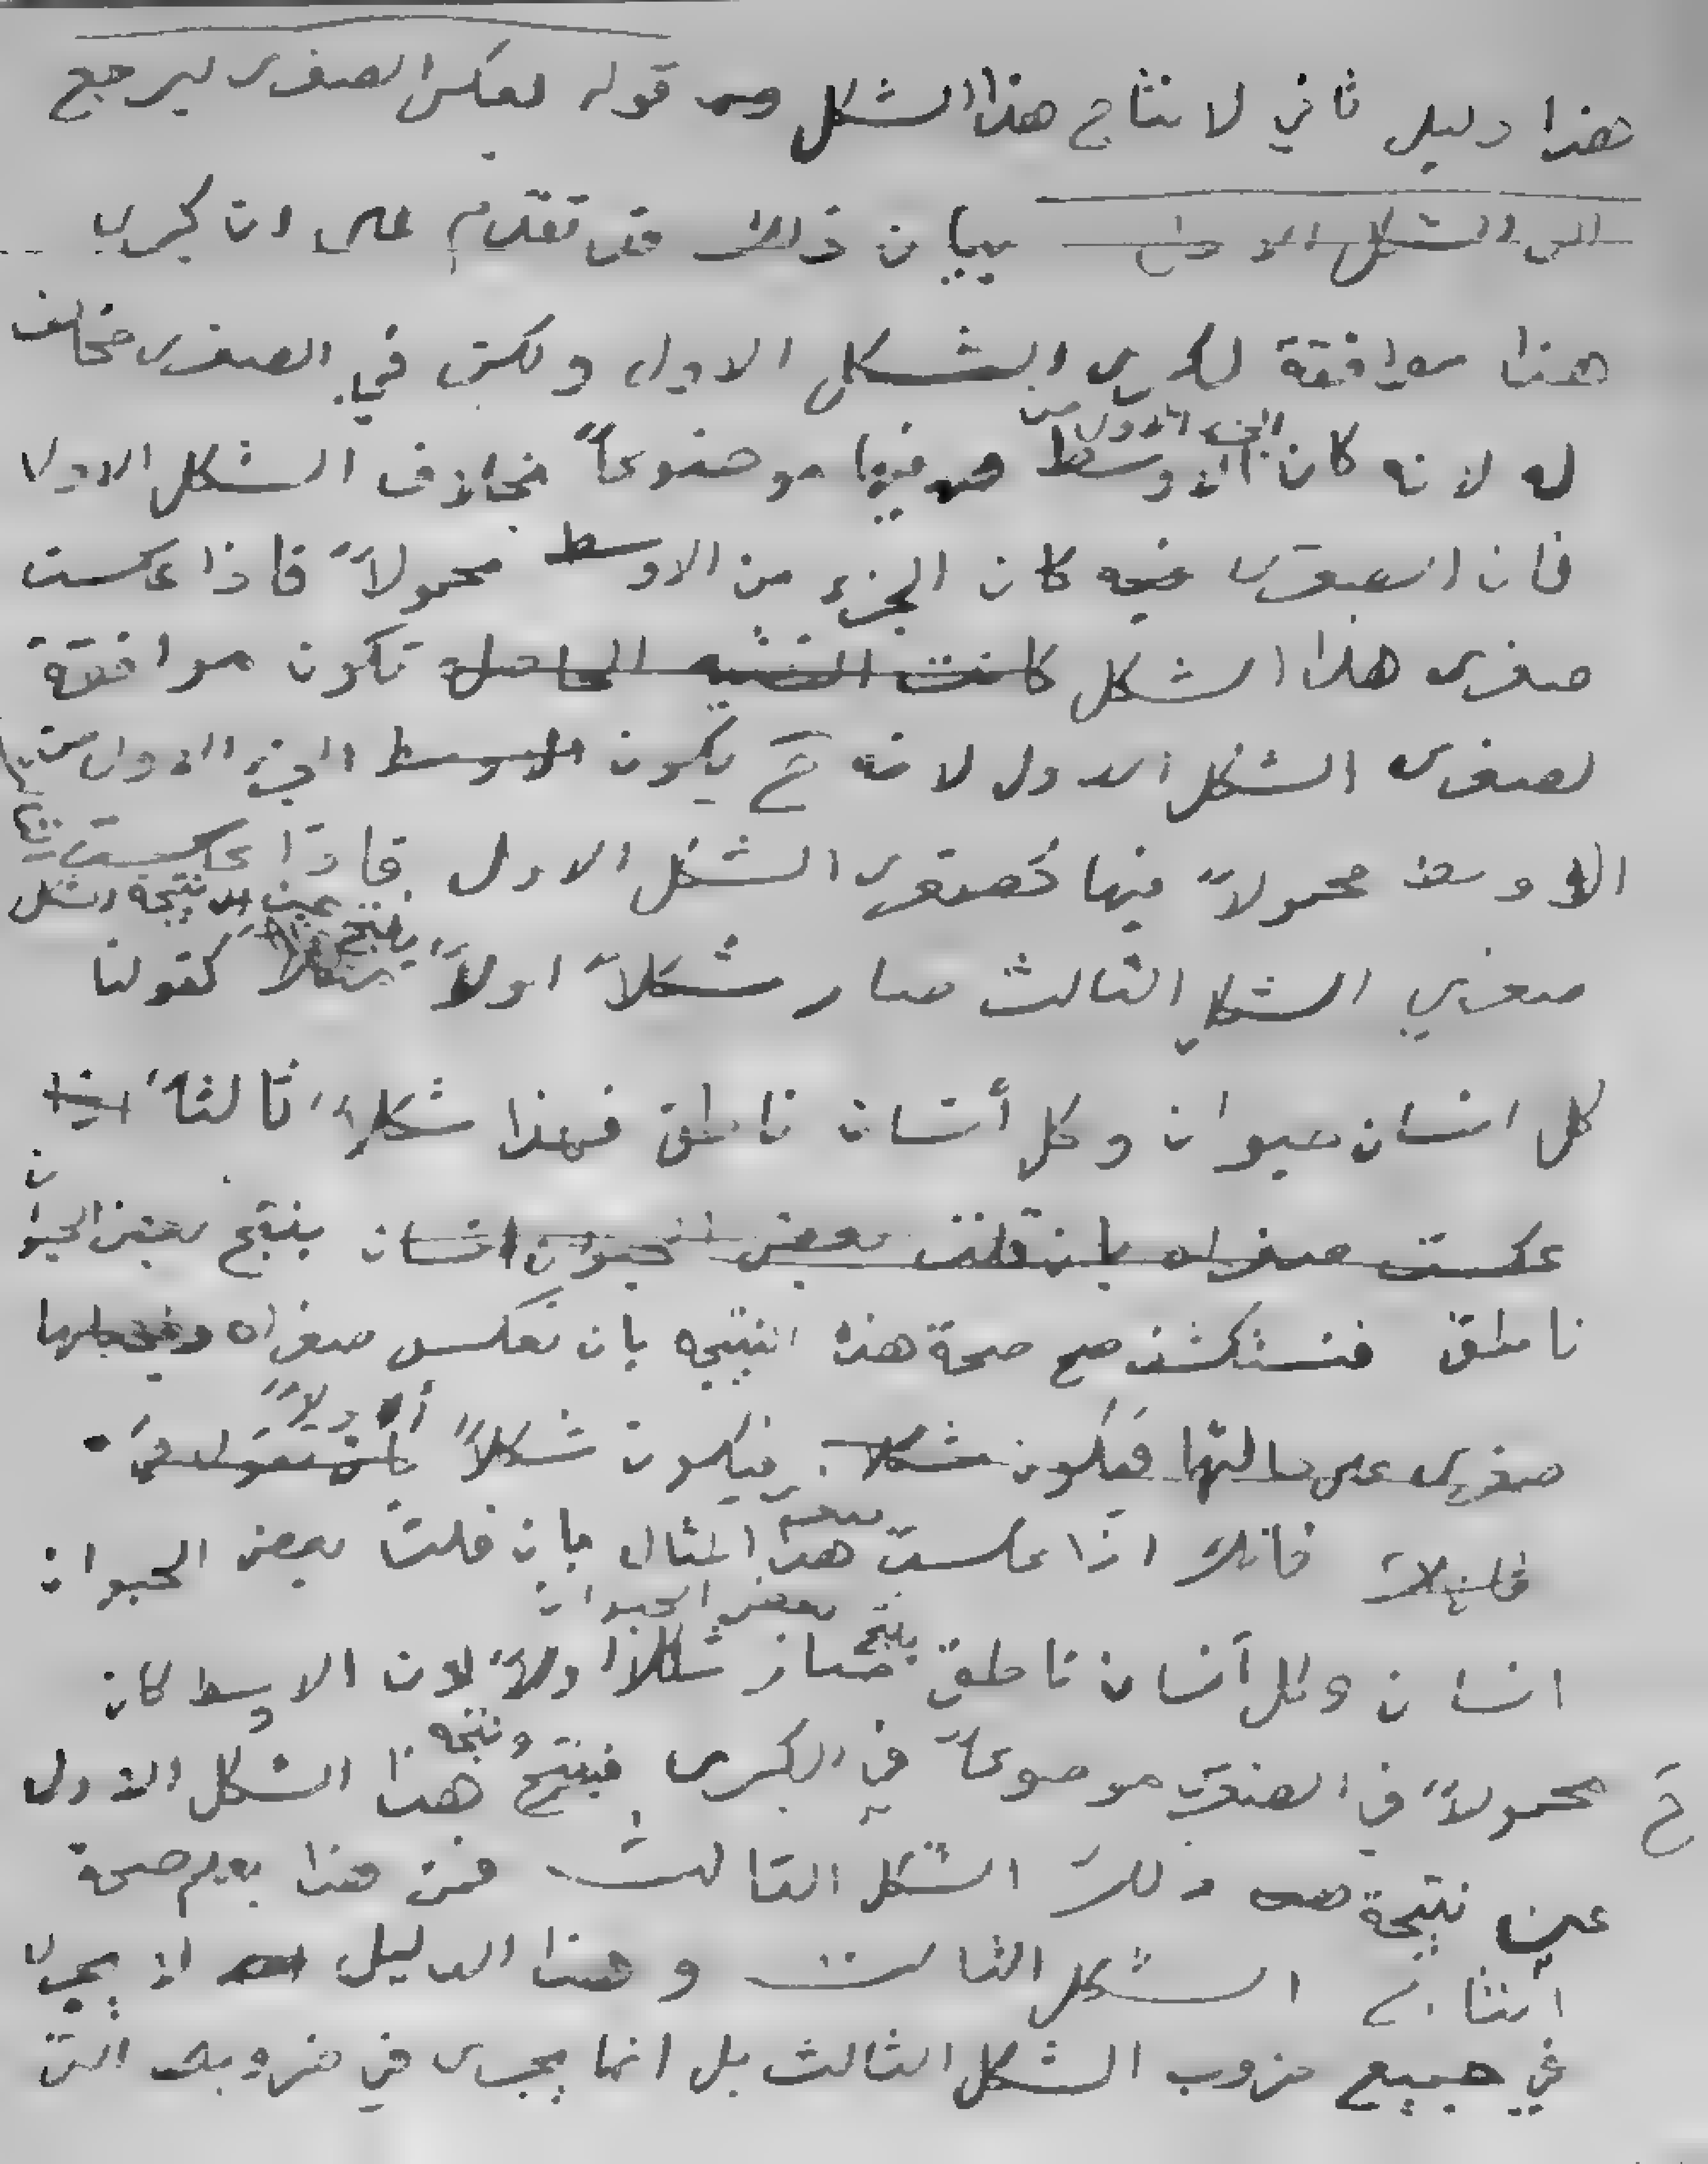 هذا دليل ثاني لانتاج هذا الشكل قوله بعكس الصغرى ليرجع
الى الشكل الاول بيان ذلك قد تقدم على ان كبرى
هذا موافقة لكبرى الشكل الاول ولكن في الصغرى مخالف
له لانه كان الجزء الاول من الاوسط فيها موضوعاً بخلاف الشكل الاول
فان الصغرى فيه كان الجزء من الاوسط محمولاً فاذا عكست
صغرى هذا الشكل كانت النتيجه الحاصله تكون موافقة
لصغرى الشكل الاول لانه ح يكون الاوسط الجزء الاول من
الاوسط محمولاً فيها كصغرى الشكل الاول فاذا عكست
ينتج عين نتيجة الشكل
صغرى الشكل الثالث صار شكلاً اولاً مثلاً كقولنا
كل انسان حيوان وكل أنسان ناطق فهذا شكلاً ثالثاً
عكست صغراه بان قلت بعض الحيوان انسان ينتج بعض الحيوان
ناطق فنستكشف صحة هذه النتيجه بان نعكس صغراه ونجعلها
صغرى على حالتها فيكون شكلا فيكون شكلاً أولاً
فانك اذا عكست صغرى هذا المثال بان قلت بعض الحيوان
انسان وكل أنسان ناطق ينتج بعض الحيوان صار شكلاً اولاً لان الاوسط كان
ح محمولاً في الصغرى موضوعاً في الكبرى فينتج ونتيجه هذا الشكل الاول
عين نتيجة ذلك الشكل الثالث فمن هذا يعلم صحة
انتاج الشكل الثالث وهذا الدليل لا يجرى
في جميع ضروب الشكل الثالث بل انما يجرى في ضروبه التى